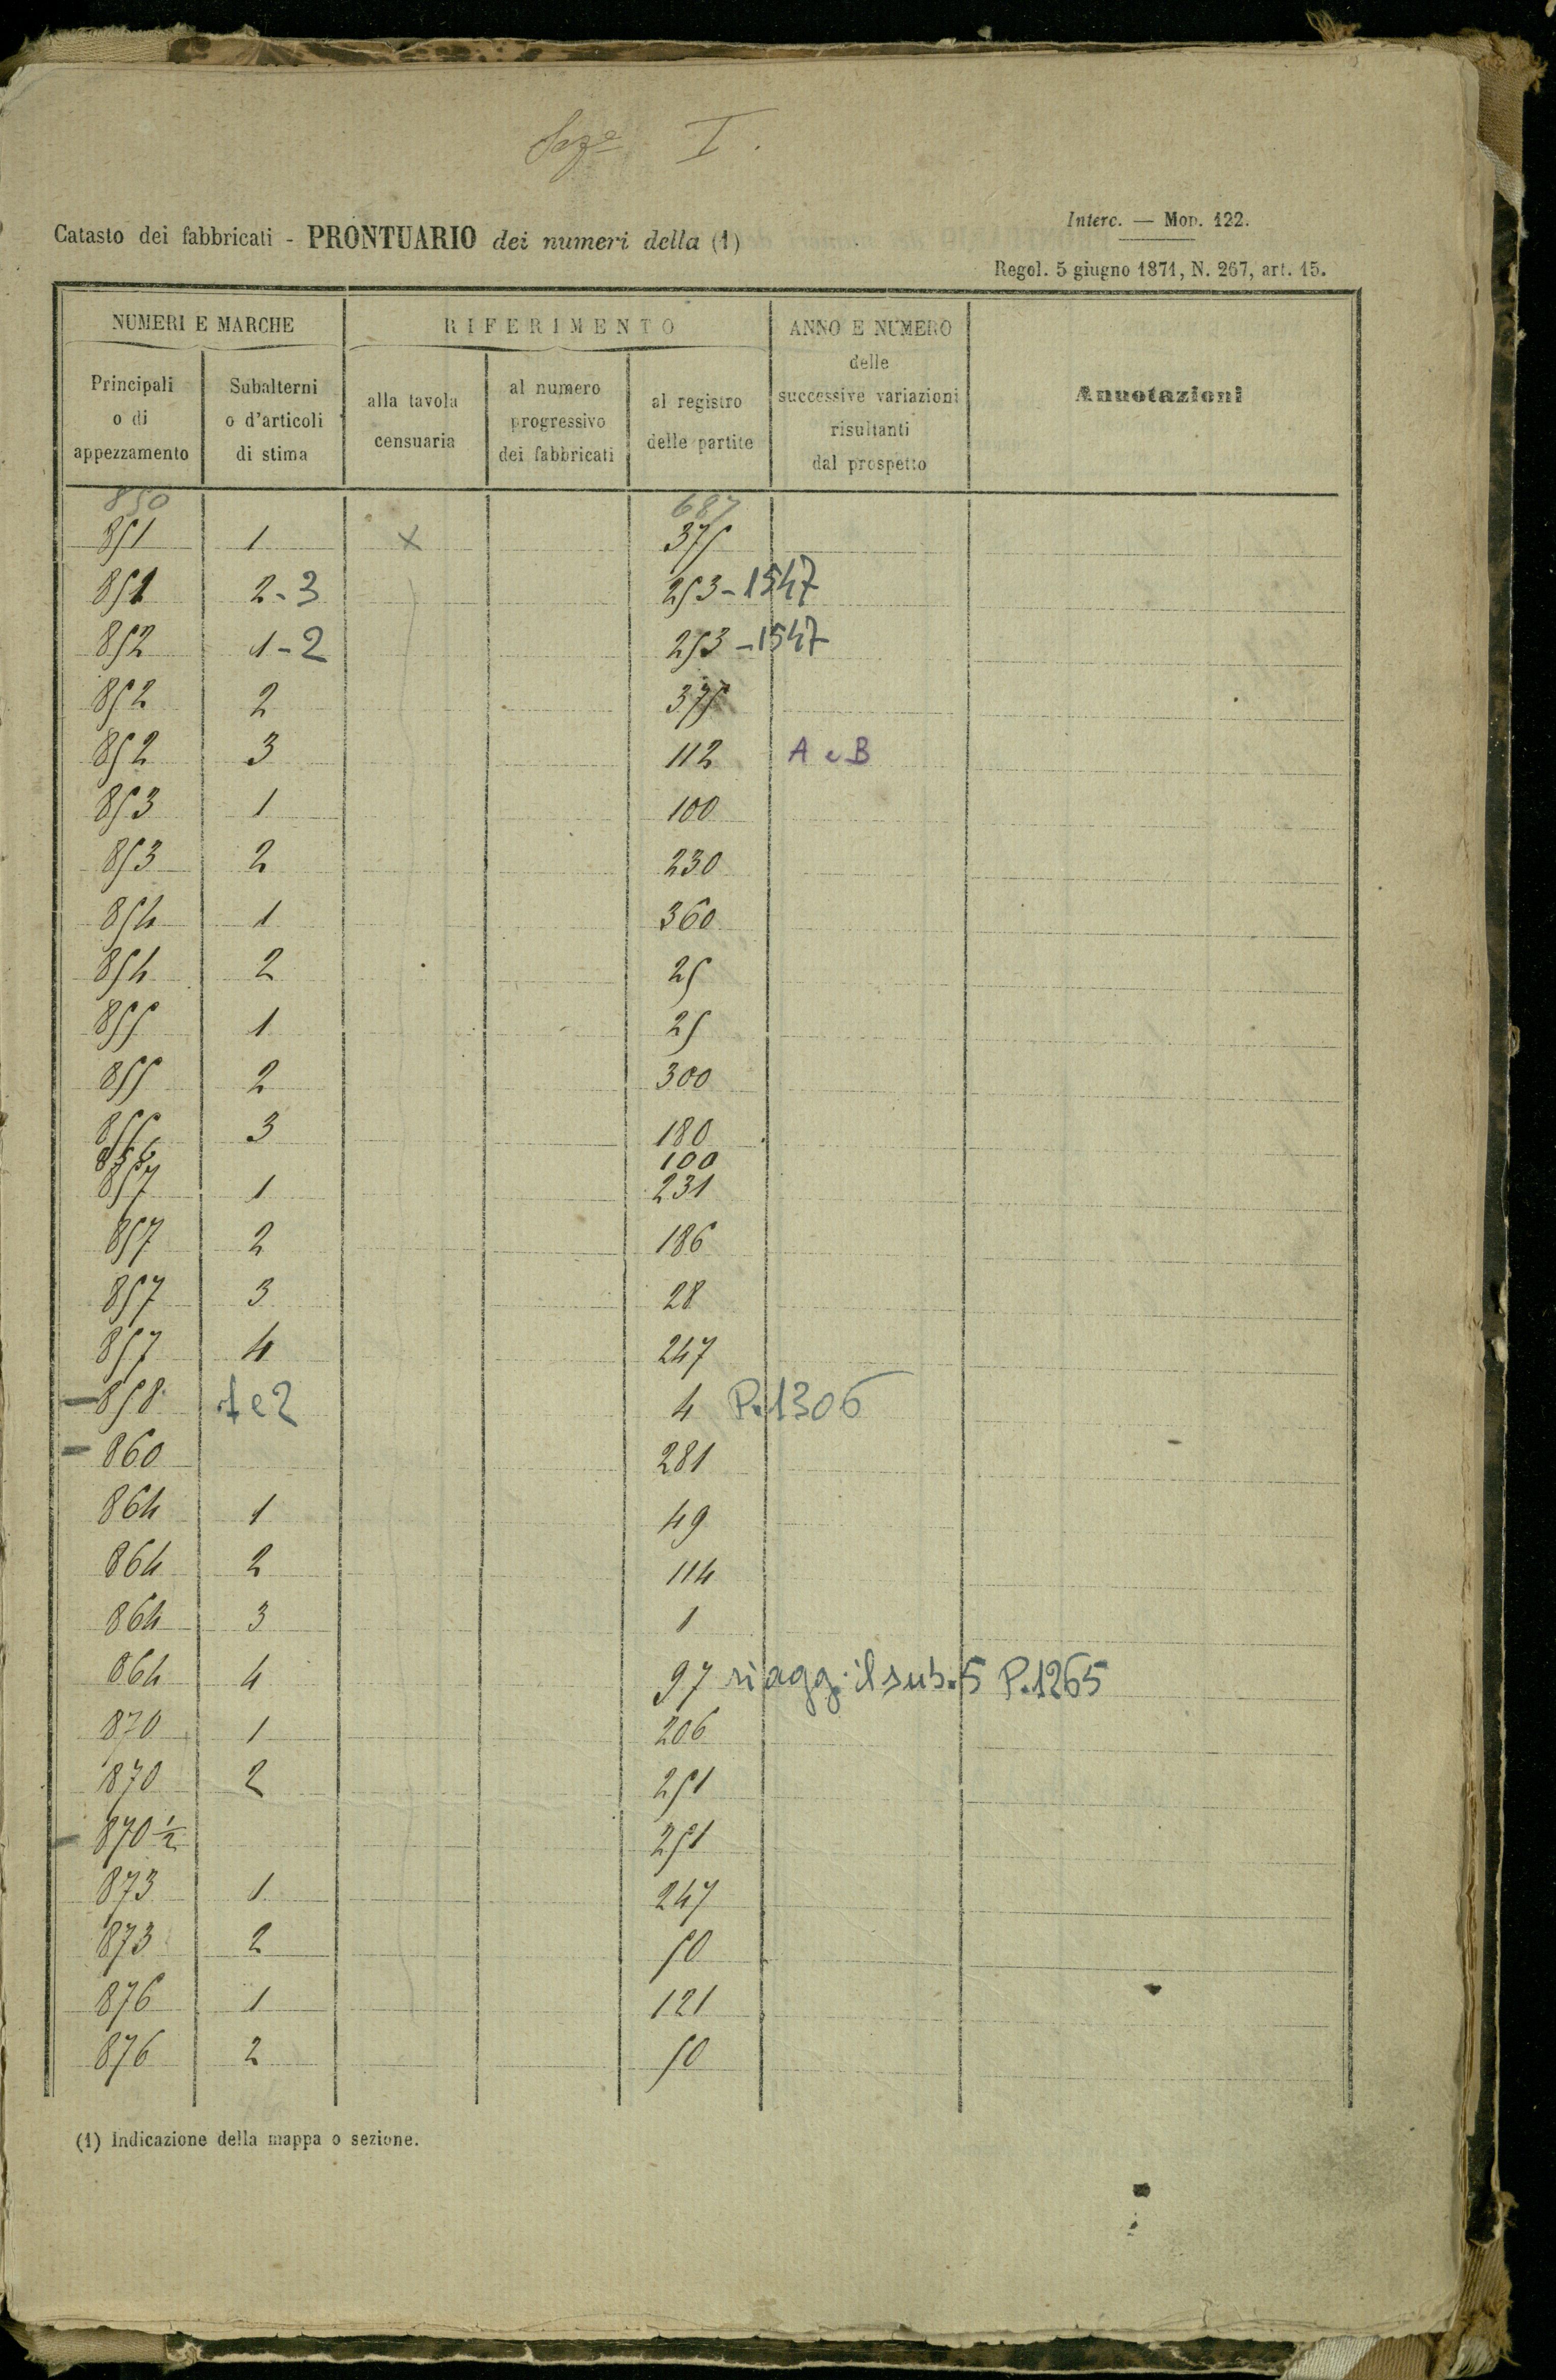 Sez.e I.
Interc. — Mod. 122.
Catasto dei fabbricati - PRONTUARIO dei numeri della (1)
Regol. 5 giugno 1871, N. 267, art. 15.
NUMERI E MARCHE RIFERIMENTO ANNO E NUMERO delle successive variazioni risultanti dal prospetto Annotazioni
Principali o di appezzamento Subalterni o d'articoli di stima alla tavola censuaria al numero progressivo dei fabbricati al registro delle partite
850 687
851 1 x 375
851 2-3 253-1547
852 1-2 253-1547
852 2 375
852 3 112 A e B
853 1 100
853 2 230
854 1 360
854 2 25
855 1 25
855 2 300
855 3 180
856 100
857 1 231
857 2 186
857 3 28
857 4 247
-858 1e2 4 P.1306
-860 281
864 1 49
864 2 114
864 3 1
864 4 97 si agg. il sub. 5 P.1265
870 1 206
870 2 251
-870 1/2 251
873 1 247
873 2 50
876 1 121
876 2 50
(1) Indicazione della mappa o sezione.